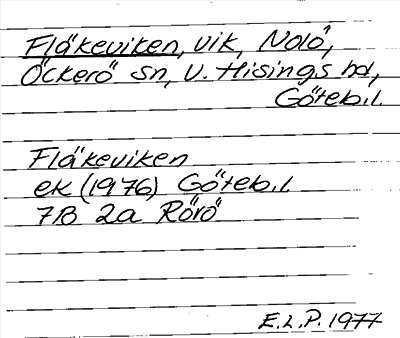 Fläkeviken, vik, Nolö,
Öckerö sn, V. Hisings hd,
Göteb.l.
Fläkeviken
ek (1976) Göteb.l
7B 2a Rörö
E.L.P. 1977